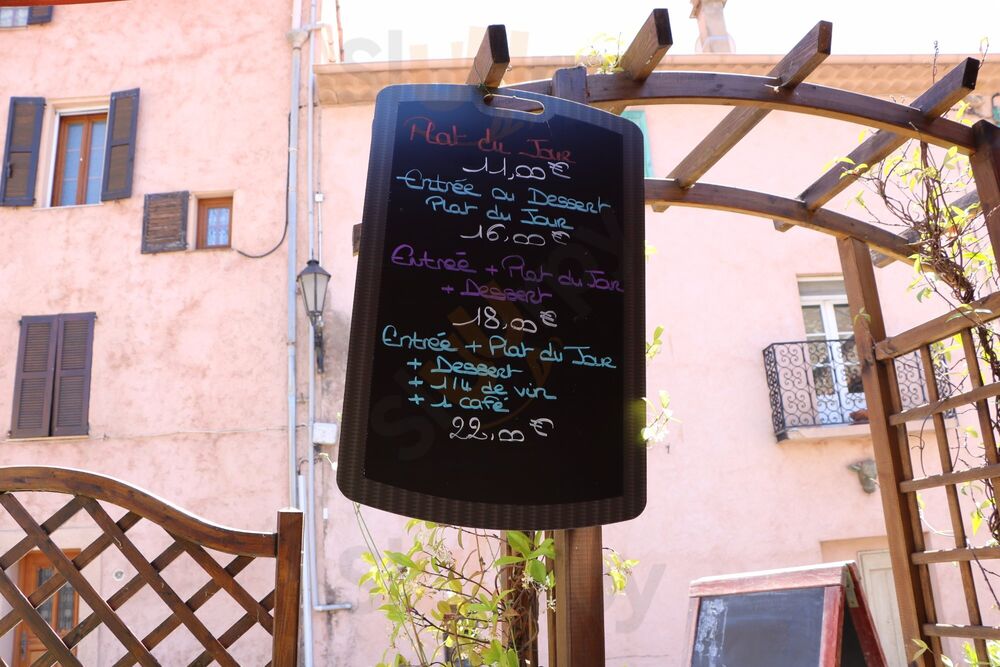 Plat du Jour
11,00 €
Entrée ou Dessert
Plat du Jour
16,00 €
Entrée + Plat du Jour
+ Dessert
18,00 €
Entrée + Plat du Jour
+ Dessert
+ 1/4 de vin
+ 1 café
22,00 €